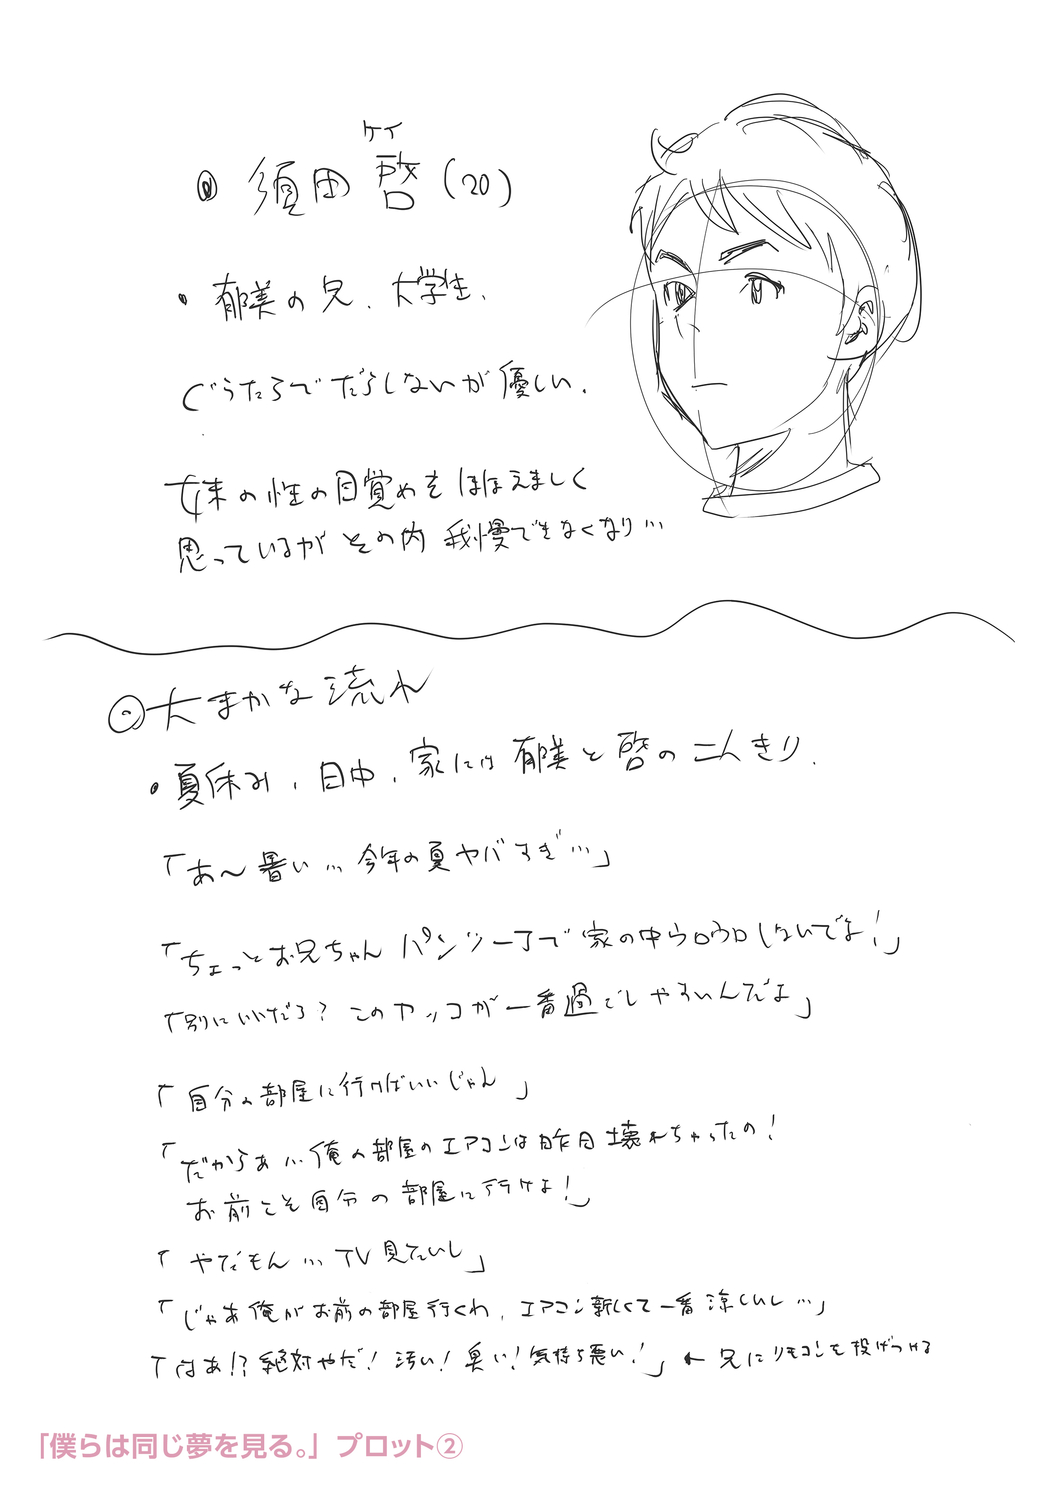 ケイ
◎ 須田 啓(20)
・郁美の兄、大学生、
ぐうたらでだらしないが優しい、
妹の性の目覚めをほほえましく
思っているがその内 我慢できなくなり…
◎大まかな流れ
・夏休み、日中、家には郁美と啓の二人きり、
「あ〜暑い…今年の夏ヤバすぎ…」
「ちょっとお兄ちゃん パンツ一丁で家の中ウロウロしないでよ!」
「別にいいだろ? このカッコが一番過ごしやすいんだよ」
「自分の部屋に行けばいいじゃん」
「だからぁ…俺の部屋のエアコンは昨日壊れちゃったの!
お前こそ自分の部屋に行けよ!」
「やだもん…TV見たいし」
「じゃあ俺がお前の部屋行くわ、エアコン新しくて一番涼しいし…」
「はあ!?絶対やだ!汚い!臭い!気持ち悪い!」←兄にリモコンを投げつける
「僕らは同じ夢を見る。」プロット②